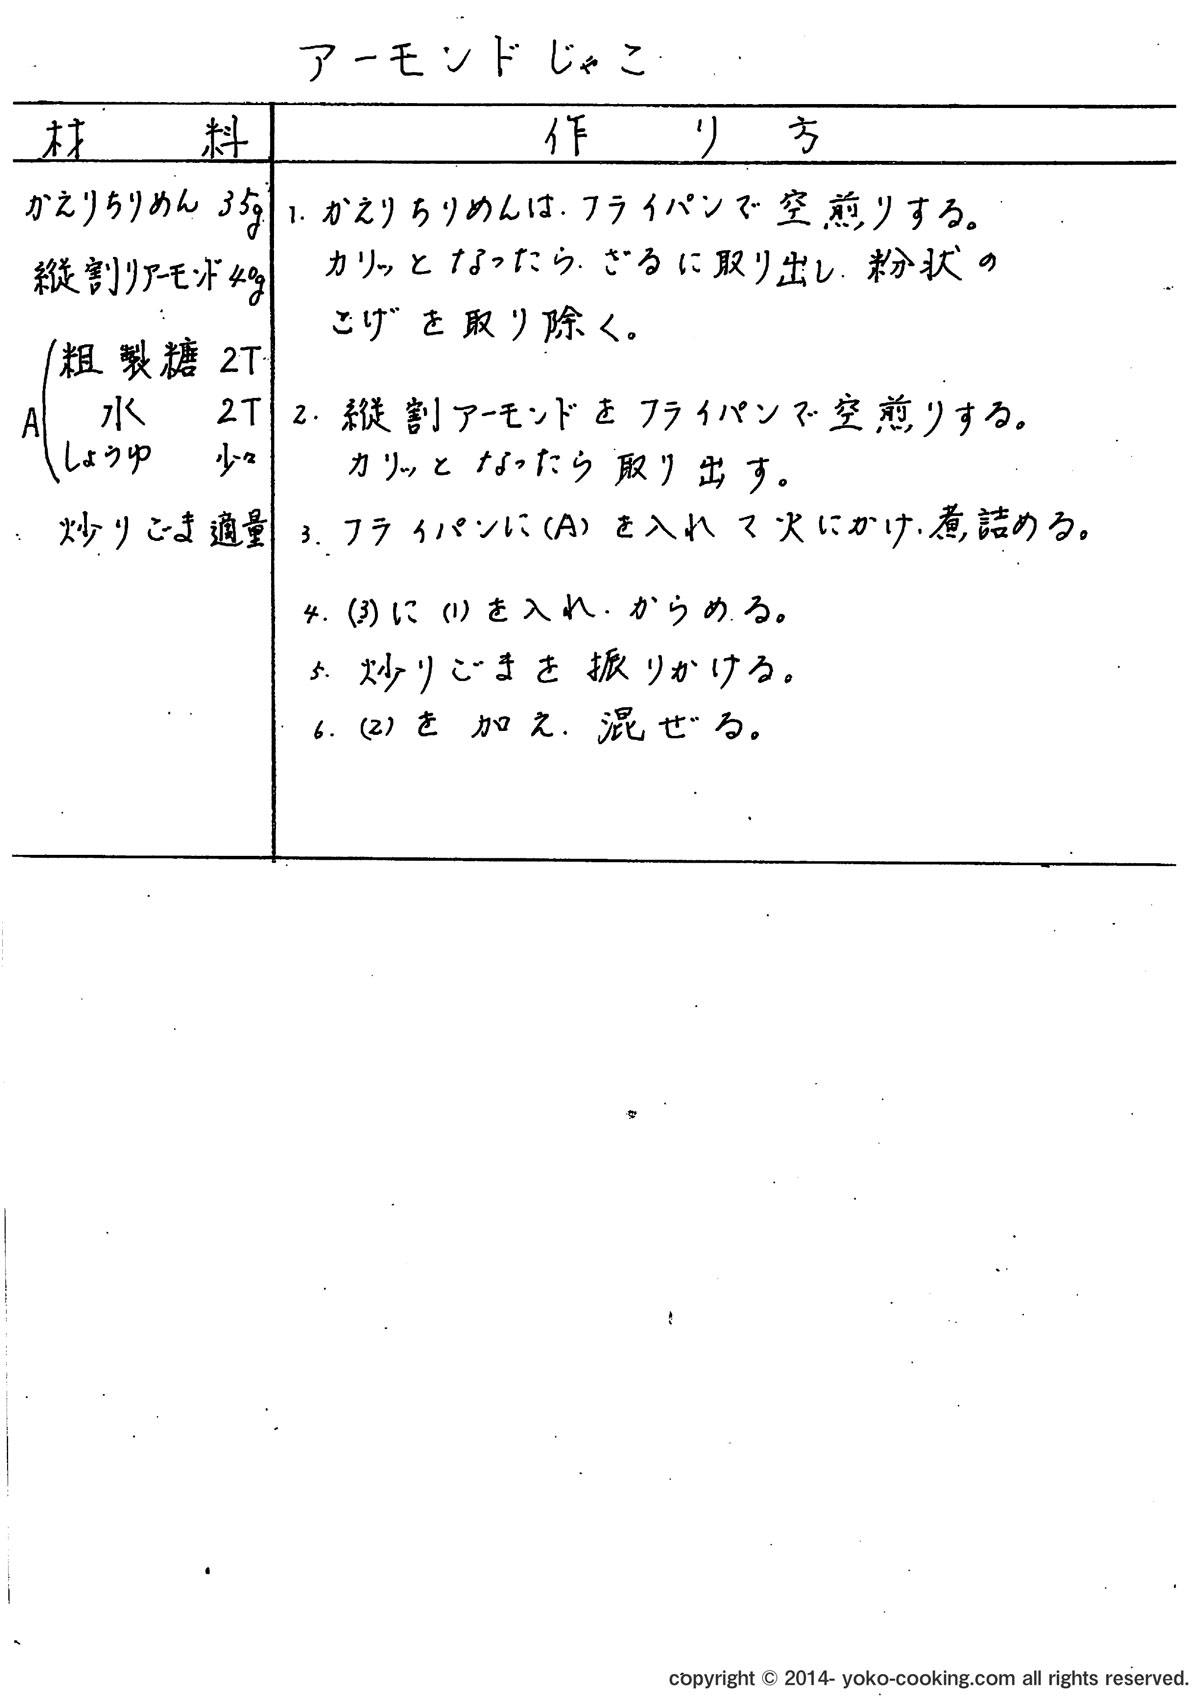 アーモンドじゃこ
材料
作り方
かえりちりめん 35g
縦割りアーモンド40g
A
粗製糖 2T
水 2T
しょうゆ 少々
炒りごま 適量
1. かえりちりめんは、フライパンで空煎りする。
カリッとなったら、ざるに取り出し、粉状の
こげを取り除く。
2. 縦割アーモンドをフライパンで空煎りする。
カリッとなったら取り出す。
3. フライパンに(A)を入れて火にかけ、煮詰める。
4. (3)に(1)を入れ、からめる。
5. 炒りごまを振りかける。
6. (2)を加え、混ぜる。
copyright © 2014- yoko-cooking.com all rights reserved.